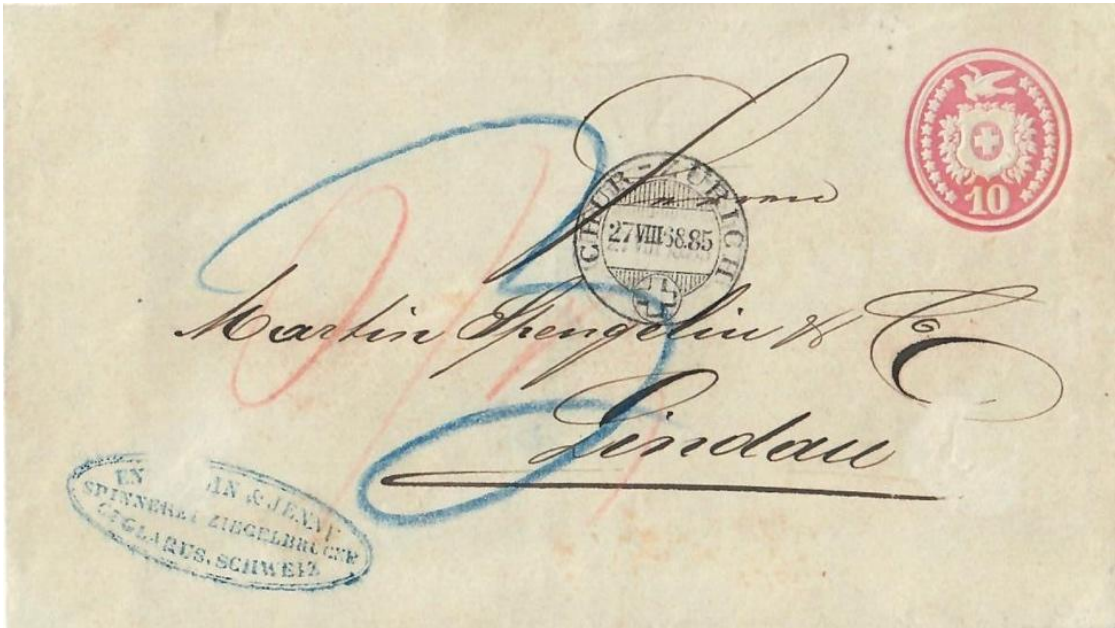 10
CHUR-ZÜRICH
27 VIII 68.85
Martin Spengelin & C
Lindau
3
& JENNY
SPINNEREI ZIEGELBRÜCKE
SCHWEIZ